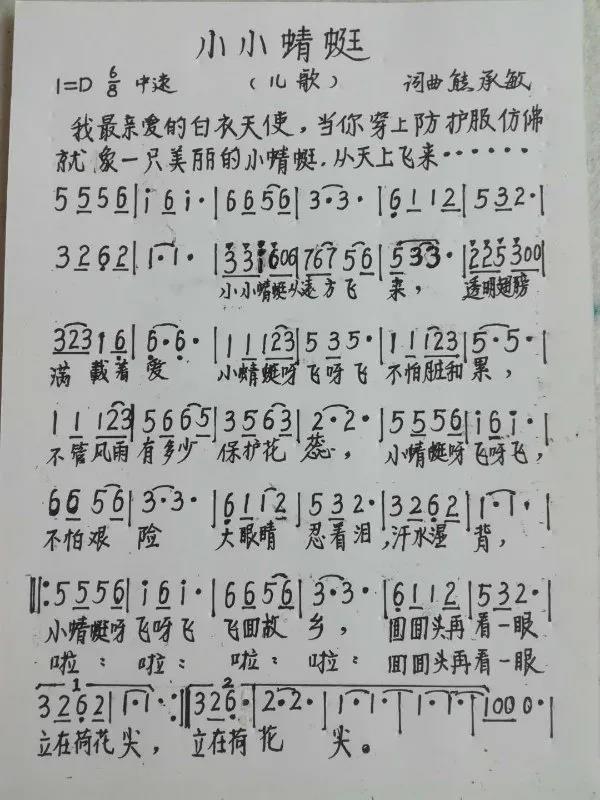 小小蜻蜓
1=D 6/8 中速 （儿歌） 词曲 熊承敏
我最亲爱的白衣天使，当你穿上防护服仿佛
就象一只美丽的小蜻蜓，从天上飞来······
5 5 5 6 | i 6 i · | 6 6 5 6 | 3 · 3 · | 6 1 1 2 | 5 3 2 · |
3 2 6 2 | 1 · 1 · | 3 3 i 6 0 6 | 7 6 7 5 6 | 5 3 3 · | 2 2 5 3 0 0 |
小小蜻蜓从远方飞 来， 透明翅膀
3 2 3 1 6 | 6 · 6 · | 1 1 1 2 3 | 5 3 5 · | 1 1 1 2 3 | 5 · 5 · |
满载着爱 小蜻蜓呀飞呀飞 不怕脏和累，
1 1 1 2 3 | 5 6 6 5 | 3 5 6 3 | 2 · 2 · | 5 5 5 6 | i 6 i · |
不管风雨有多少 保护花蕊， 小蜻蜓呀飞呀飞，
6 6 5 6 | 3 · 3 · | 6 1 1 2 | 5 3 2 · | 3 2 6 2 | 1 · 1 · |
不怕艰险 大眼睛 忍着泪，汗水湿背，
‖: 5 5 5 6 | i 6 i · | 6 6 5 6 | 3 · 3 · | 6 1 1 2 | 5 3 2 · |
小蜻蜓呀飞呀飞 飞回故乡， 回回头再看一眼
啦： 啦： 啦： 啦： 回回头再看一眼
1 2
3 2 6 2 | 1 · 1 · :‖ 3 2 6 · | 2 · 2 · | 1 · 1 · | 1 · 1 · | 1 0 0 0 · |
立在荷花尖， 立在荷花 尖。